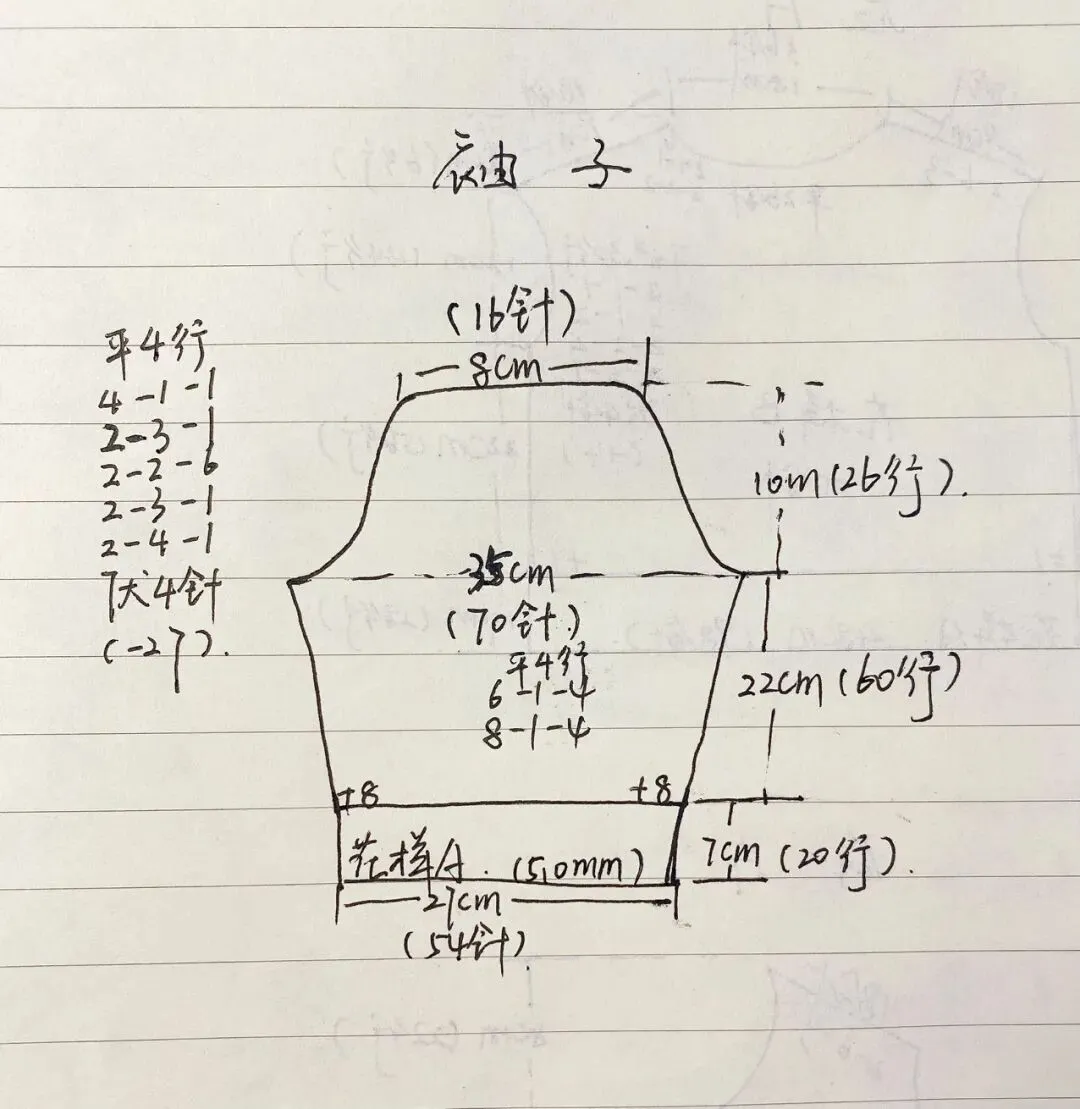 袖 子
(16针)
8cm
平4行
4-1-1
2-3-1
2-2-6
2-3-1
2-4-1
伏4针
(-27).
10m(26行).
35cm
(70针)
平4行
6-1-4
8-1-4
22cm(60行)
+8
+8
花样A.(5.0mm)
7cm(20行).
27cm
(54针).